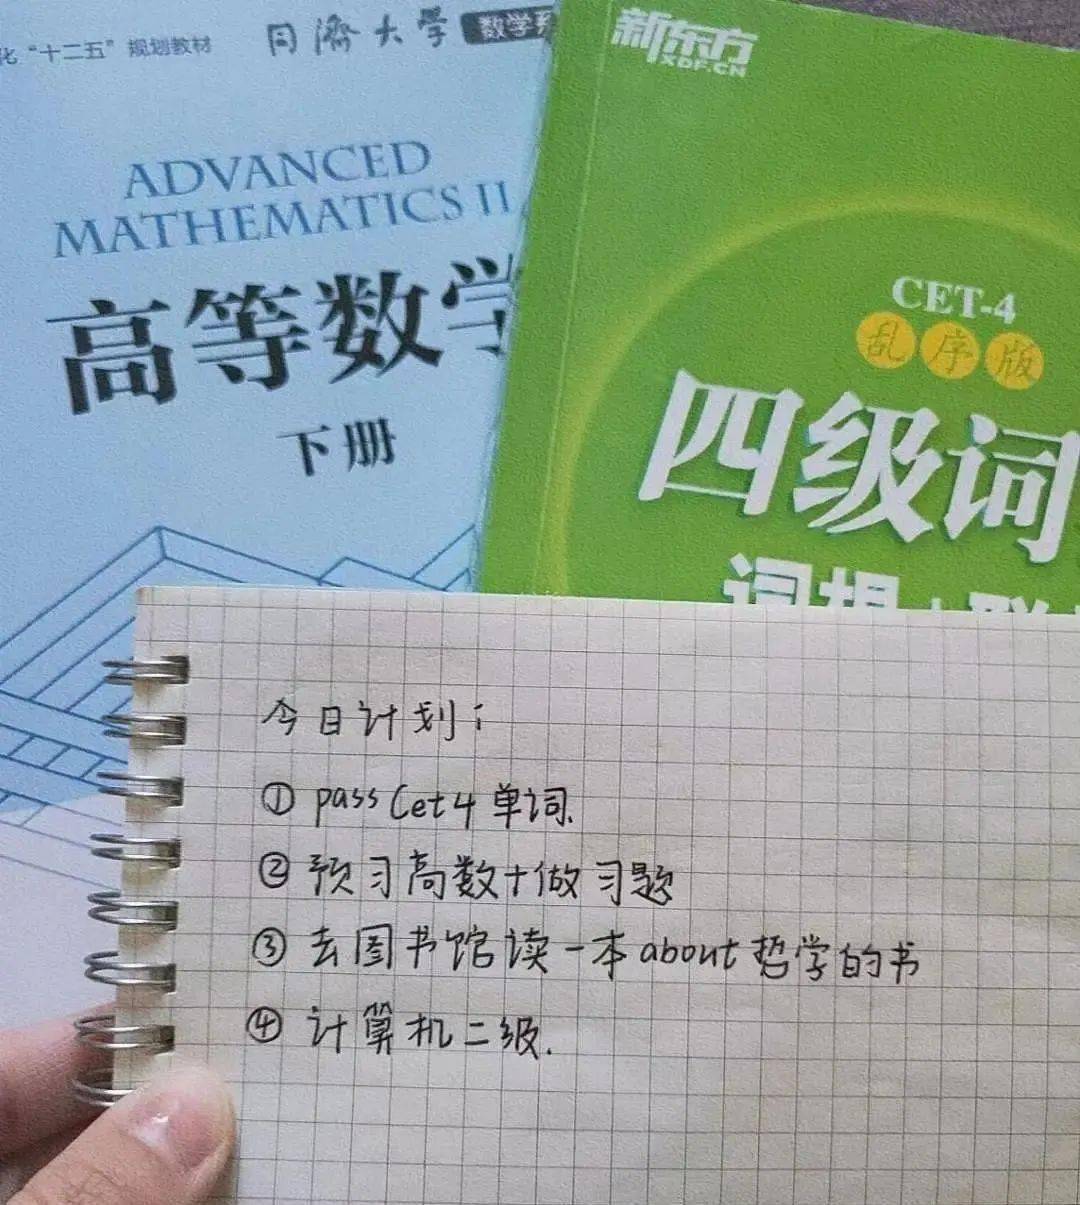 化“十二五”规划教材
同济大学 数学系
ADVANCED
MATHEMATICS II
高等数学
下册
新东方
XDF.CN
CET-4
乱序版
四级词
词根+联
今日计划：
① pass Cet4 单词.
② 预习高数+做习题
③ 去图书馆读一本about哲学的书
④ 计算机二级.